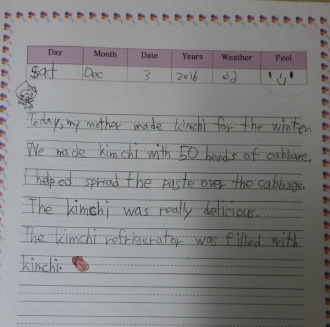 Day Month Date Years Weather Feel
Sat Dec 3 2016
Today, my mother made kimchi for the winter.
We made kimchi with 50 heads of cabbage.
I helped spread the paste over the cabbage.
The kimchi was really delicious.
The kimchi refrigerator was filled with
kimchi.